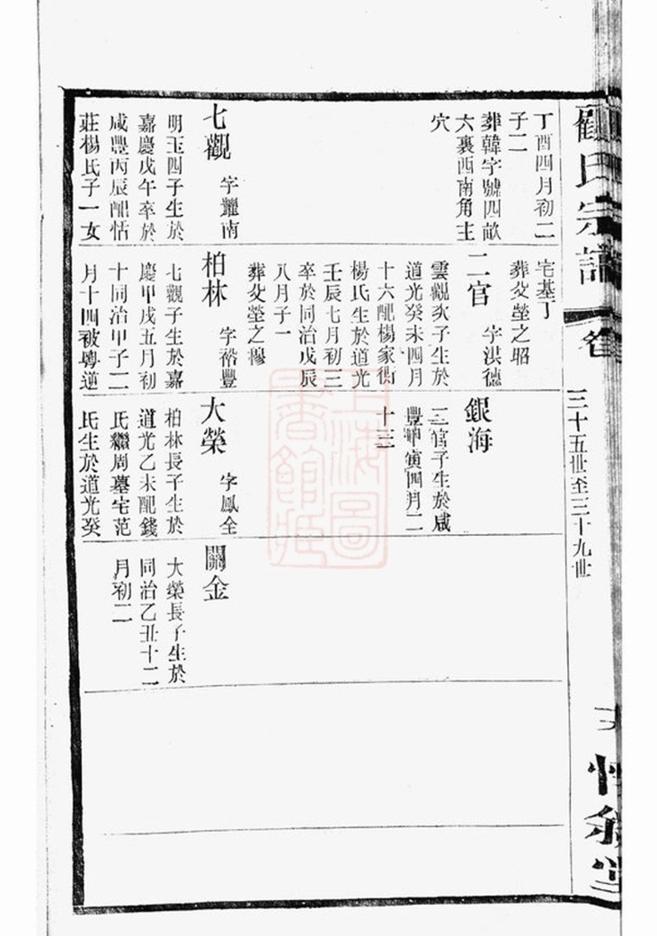 顧氏宗譜
卷
三十五世至三十九世
丁酉四月初二
子二
葬韓字號四畝
六裏西南角主
穴
七觀 字耀南
明玉四子生於
嘉慶戊午卒於
咸豐丙辰配恬
莊楊氏子一女
宅基丁
葬父塋之昭
二官 字洪德
雲觀次子生於
道光癸未四月
十六配楊家街
楊氏生於道光
壬辰七月初三
卒於同治戊辰
八月子一
葬父塋之穆
柏林 字裕豐
七觀子生於嘉
慶甲戌五月初
十同治甲子二
月十四被粵逆
銀海
二官子生於咸
豐甲寅四月二
十三
大榮 字鳳全
柏林長子生於
道光乙未配錢
氏繼周墓宅范
氏生於道光癸
關金
大榮長子生於
同治乙丑十二
月初二
上海圖
書館藏